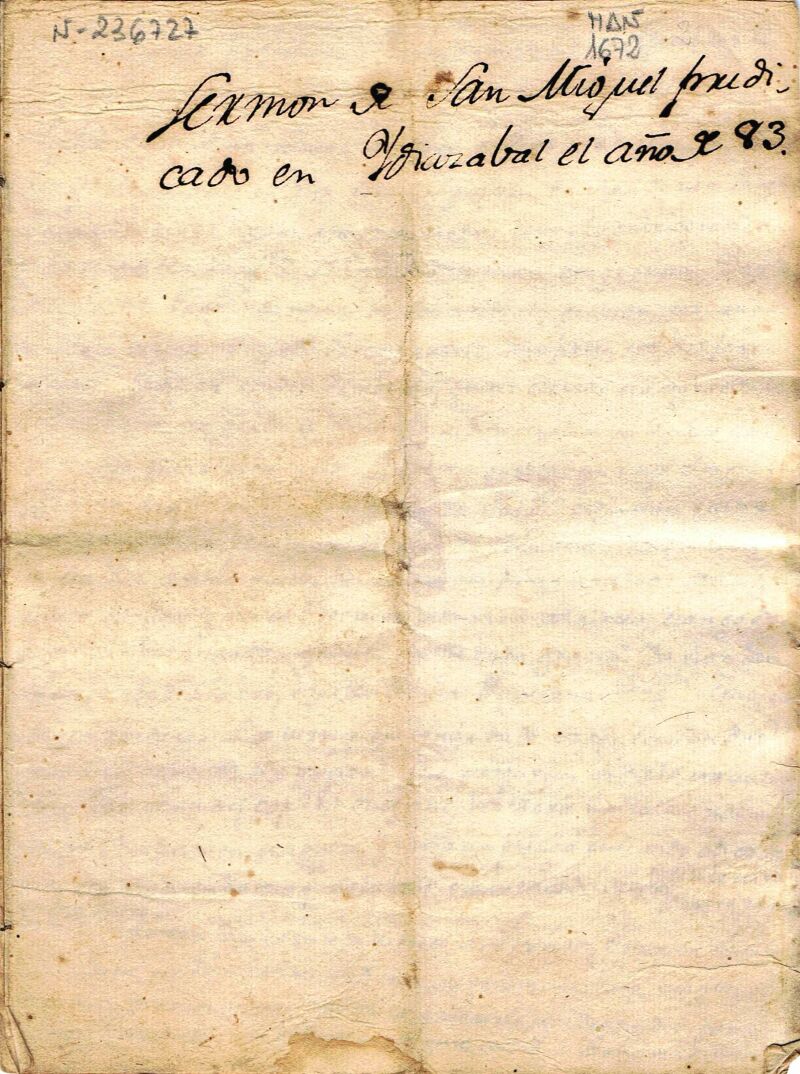 N-236727
MAN
1672
Sermon de San Miguel predi-
cado en Ydiazabal el año de 83.